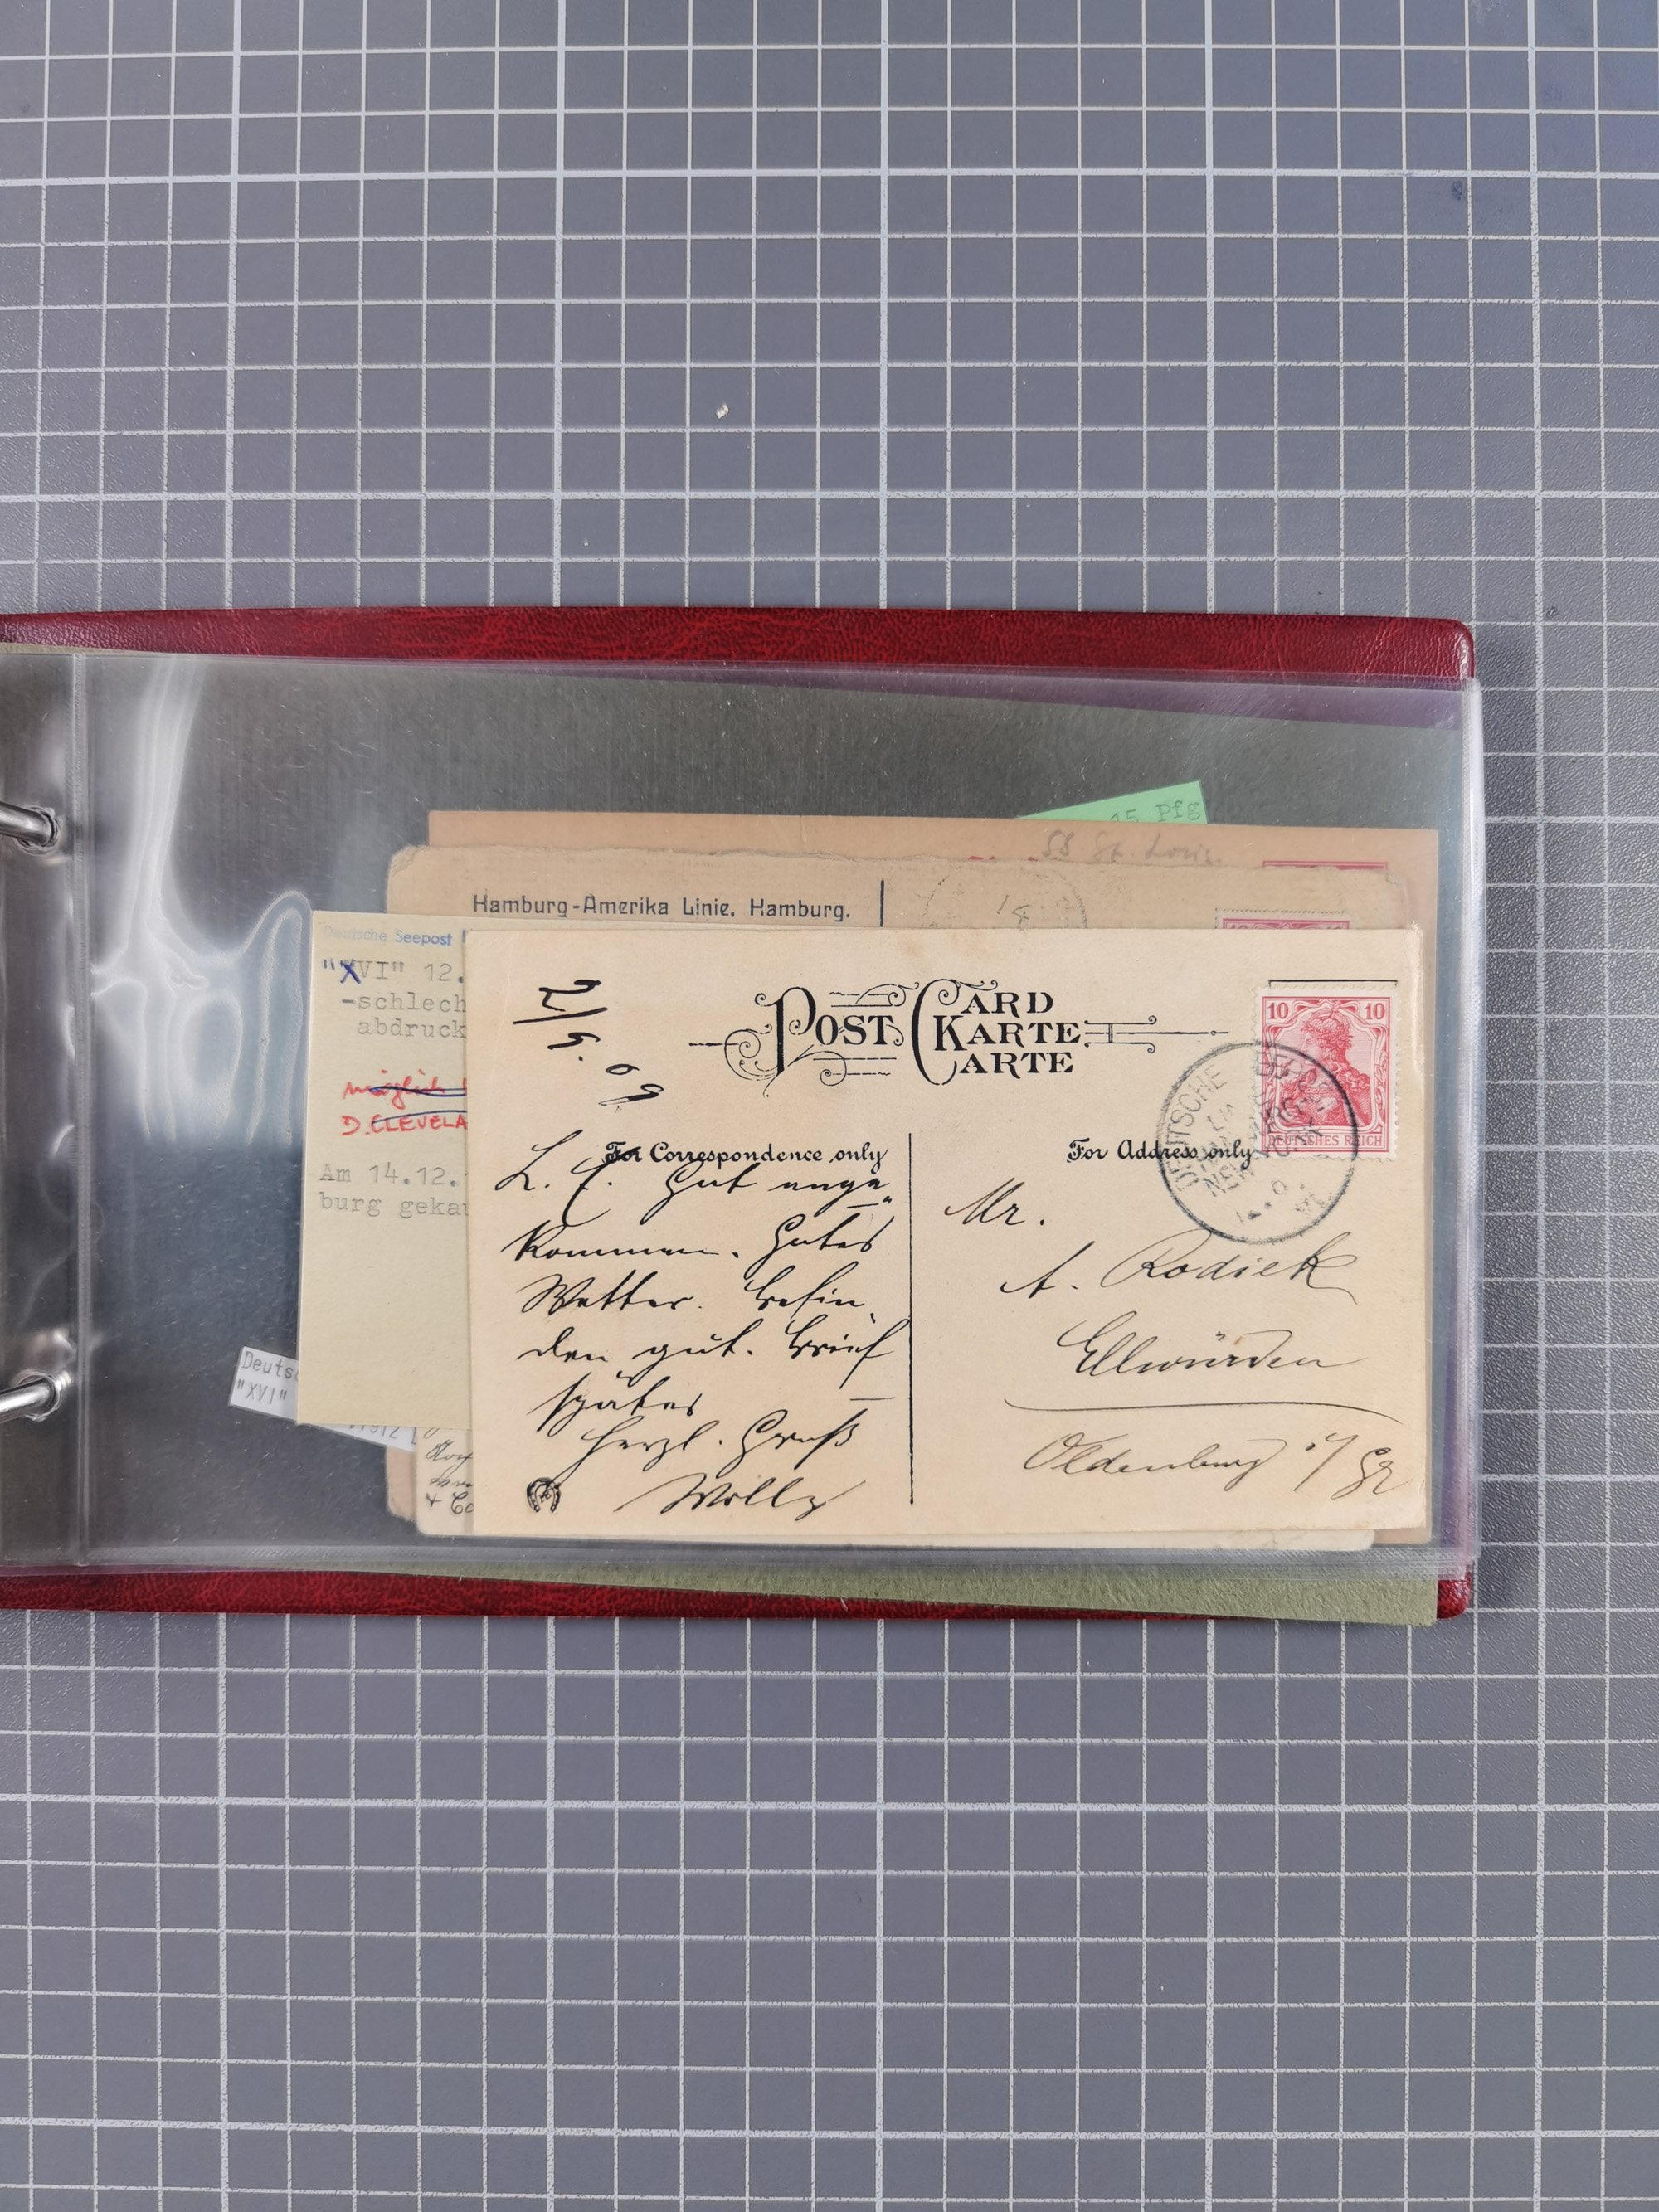 15 Pfg
SS St. Louis
Hamburg-Amerika Linie, Hamburg.
Deutsche Seepost
"XVI" 12.
-schlech
abdruck
möglich
D. CLEVELA
Am 14.12.
burg gekau
Deutsc
"XVI"
+ Co
2/5. 09
POST CARD
KARTE
CARTE
For Correspondence only
L. E. Gut ange
kommen. Gutes
Wetter. Befin
den gut. Brief
später —
Herzl. Gruß
Willy
For Address only
10 10
DEUTSCHES REICH
DEUTSCHE
NEW YORK
Mr.
A. Rodiek
Ellwürden
Oldenburg i/Gr